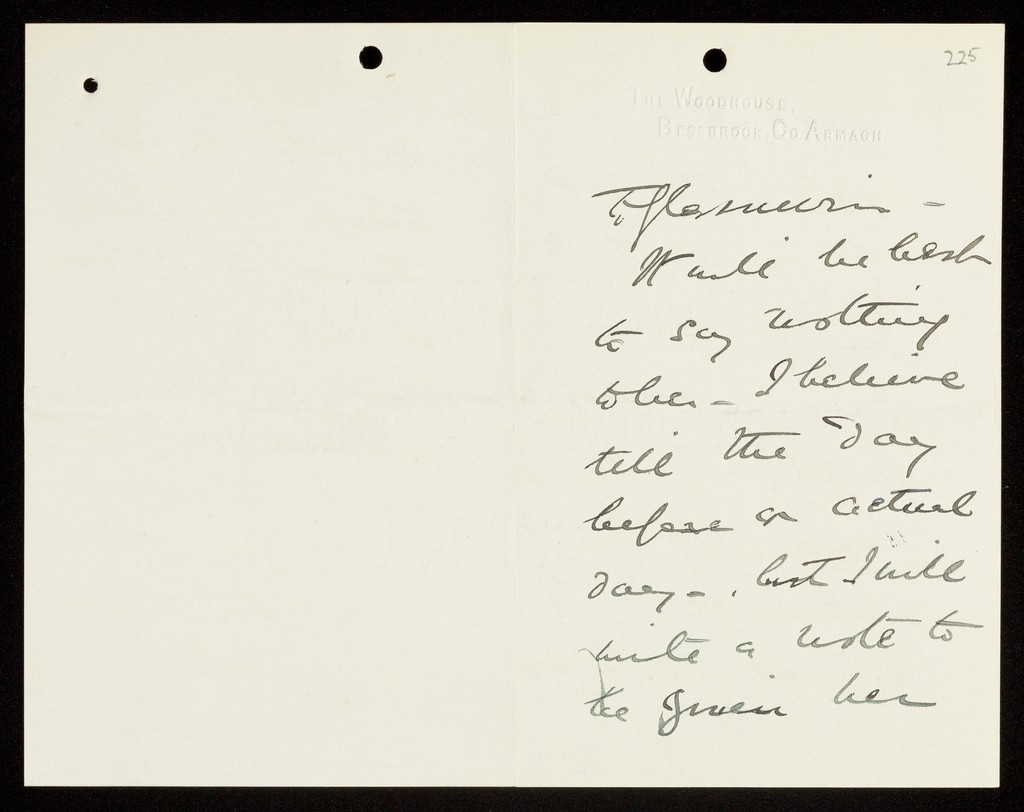 225
THE WOODHOUSE,
BESSBROOK, CO. ARMAGH.
To Glasnevin -
It will be best
to say nothing
to her - I believe
till the day
before or actual
day - , but I will
write a note to
be given her